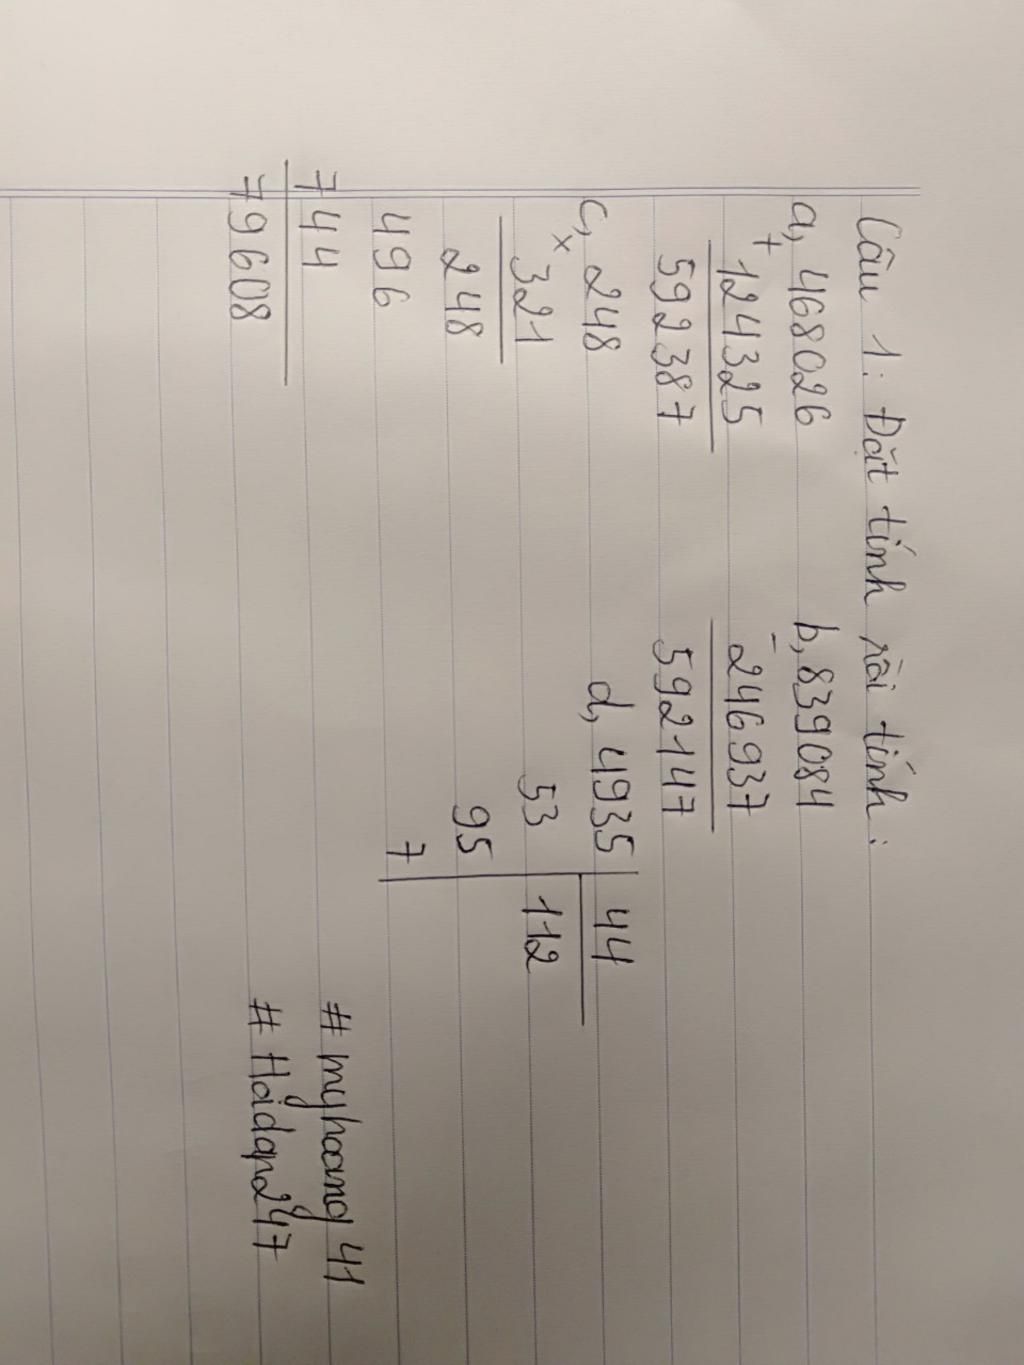 Câu 1: Đặt tính rồi tính:
a, 468026 b, 839084
+ -
124325 246937
592387 592147
c, 248 d, 4935 44
x
321 53 112
248 95
496 7
744 # myhoang 41
79608 # Hoidap247